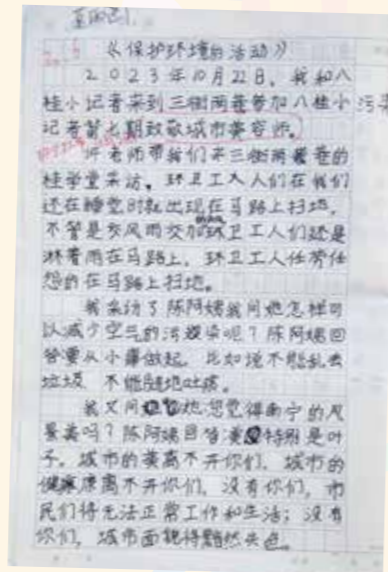 《保护环境的活动》
2023年10月22日，我和八
桂小记者来到三街两巷参加八桂小
记者第七期致敬城市美容师。
许老师带我们来三街两巷的
桂学堂采访。环卫工人人们在我们
还在睡觉时就出现在马路上扫地，
不管是交风雨交加环卫工人们还是
淋着雨在马路上，环卫工人任劳任
怨的在马路上扫地。
我采访了陈阿姨我问她怎样可
以减少空气的污染呢？陈阿姨回
答要从小事做起，比如说不能乱丢
垃圾，不能随地吐痰。
我又问她您觉得南宁的风
景美吗？陈阿姨回答美特别是叶
子。城市的美离不开你们，城市的
健康离不开你们，没有你们，市
民们将无法正常工作和生活；没有
你们，城市面貌得黯然失色。
污染